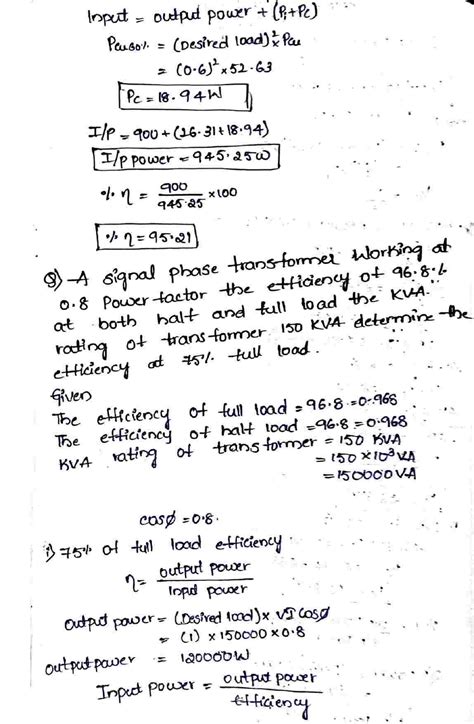 Input = output power + (Pi+Pc)
Pcu60% = (Desired load)² x Pcu
= (0.6)² x 52.63
Pc = 18.94W
I/P = 900 + (26.31+18.94)
I/p power = 945.25W
% η = 900/945.25 x100
% η = 95.21
8) A signal phase transformer working at
0.8 Power-factor the efficiency of 96.8%
at both half and full load the KVA.
rating of transformer 150 KVA determine the
efficiency at 75% full load.
Given
The efficiency of full load = 96.8 = 0.968
The efficiency of half load = 96.8 = 0.968
KVA rating of transformer = 150 KVA
= 150 x 10³ VA
= 150000VA
cosø = 0.8.
i) 75% of full load efficiency
η = output power / Input power
output power = (Desired load) x VI cosø
= (1) x 150000 x 0.8
output power = 120000W
Input power = output power / Efficiency